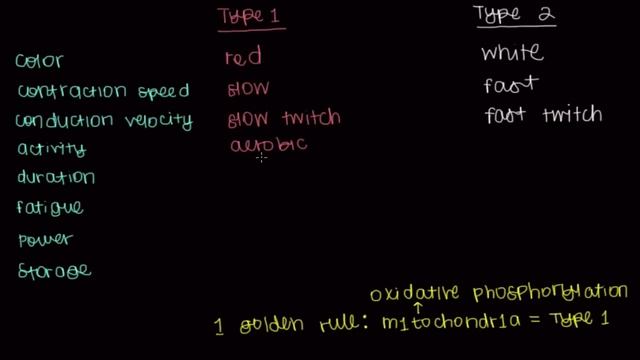 Type 1 Type 2
color red white
contraction speed slow fast
conduction velocity slow twitch fast twitch
activity aerobic
duration
fatigue
power
storage
oxidative phosphorylation
1 golden rule: m1tochondr1a = Type 1